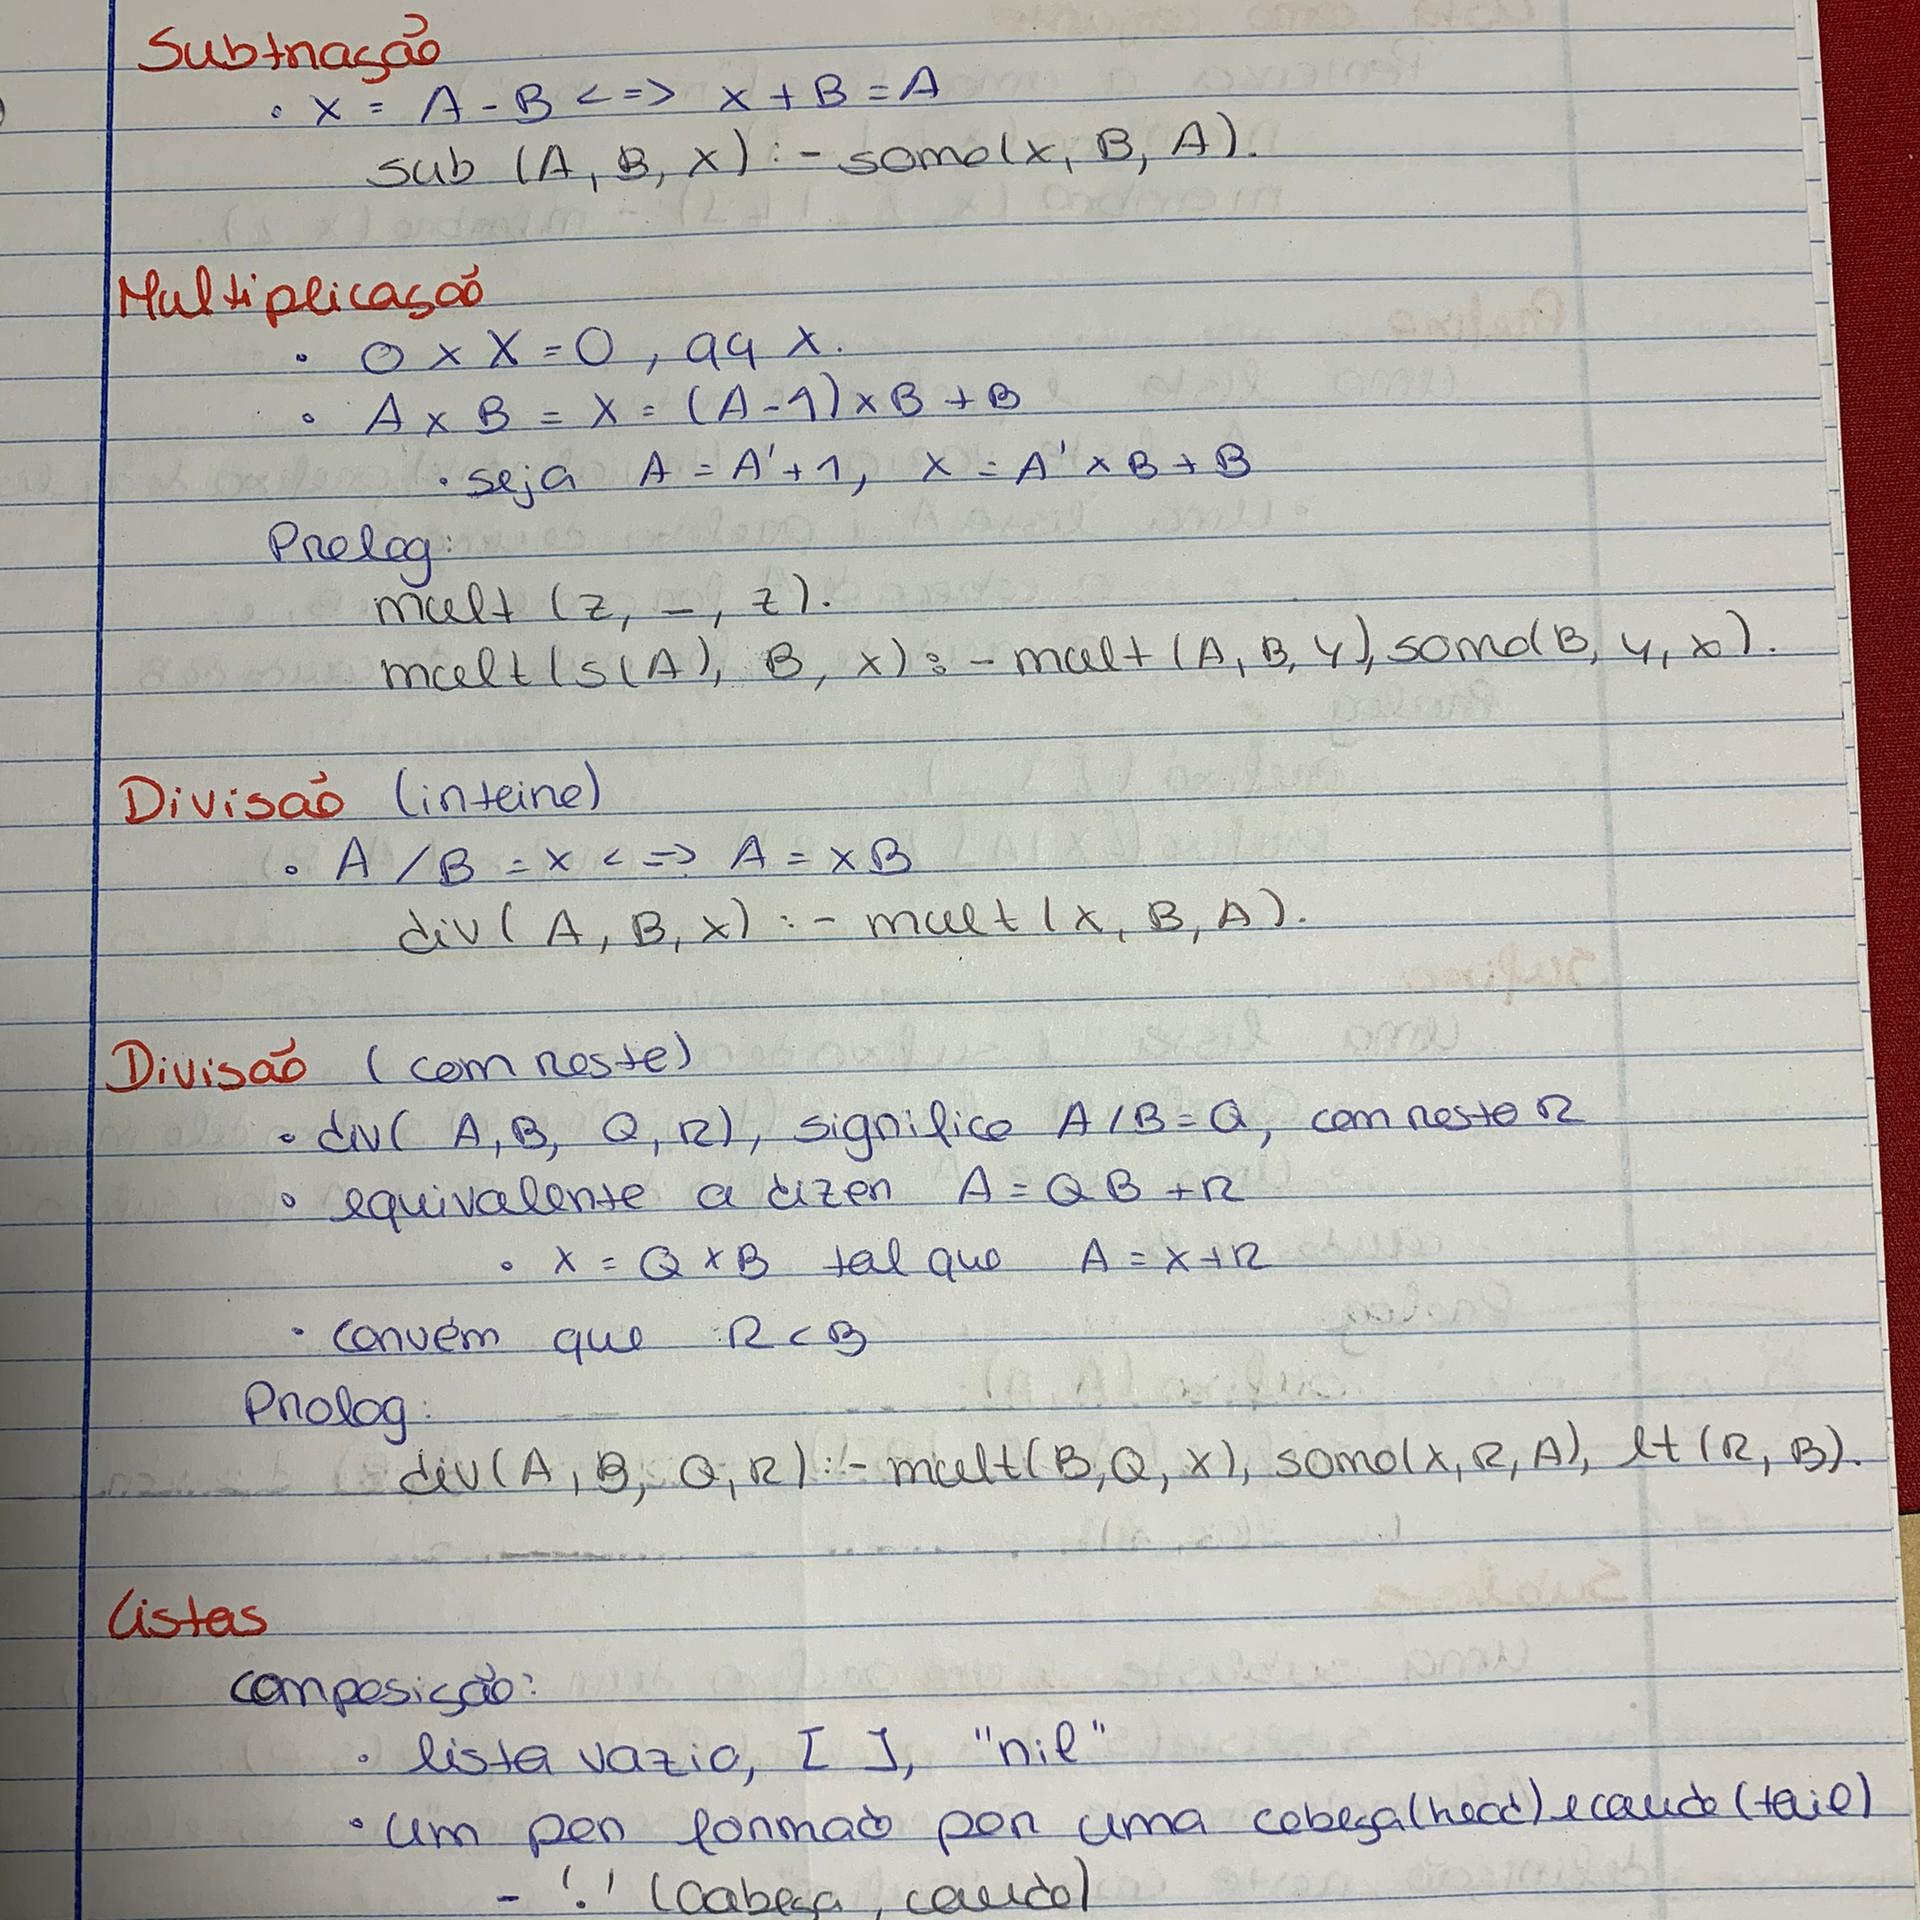 Subtração
• X = A - B <=> X + B = A
sub (A, B, X) :- soma(X, B, A).
Multiplicação
• 0 x X = 0, qq X.
• A x B = X = (A-1) x B + B
• seja A = A' + 1, X = A' x B + B
Prolog:
mult (z, _, z).
mult(s(A), B, X) :- mult(A, B, Y), soma(B, Y, X).
Divisão (inteira)
• A / B = X <=> A = XB
div( A, B, X) :- mult(X, B, A).
Divisão (com resto)
• div( A, B, Q, R), significa A / B = Q, com resto R
• equivalente a dizer A = QB + R
• X = Q x B tal que A = X + R
• convém que R < B
Prolog:
div(A, B, Q, R) :- mult(B, Q, X), soma(X, R, A), lt (R, B).
Listas
composição:
• lista vazia, [ ], "nil"
• um par formado por uma cabeça(head) e cauda(tail)
- '.' (cabeça, cauda)